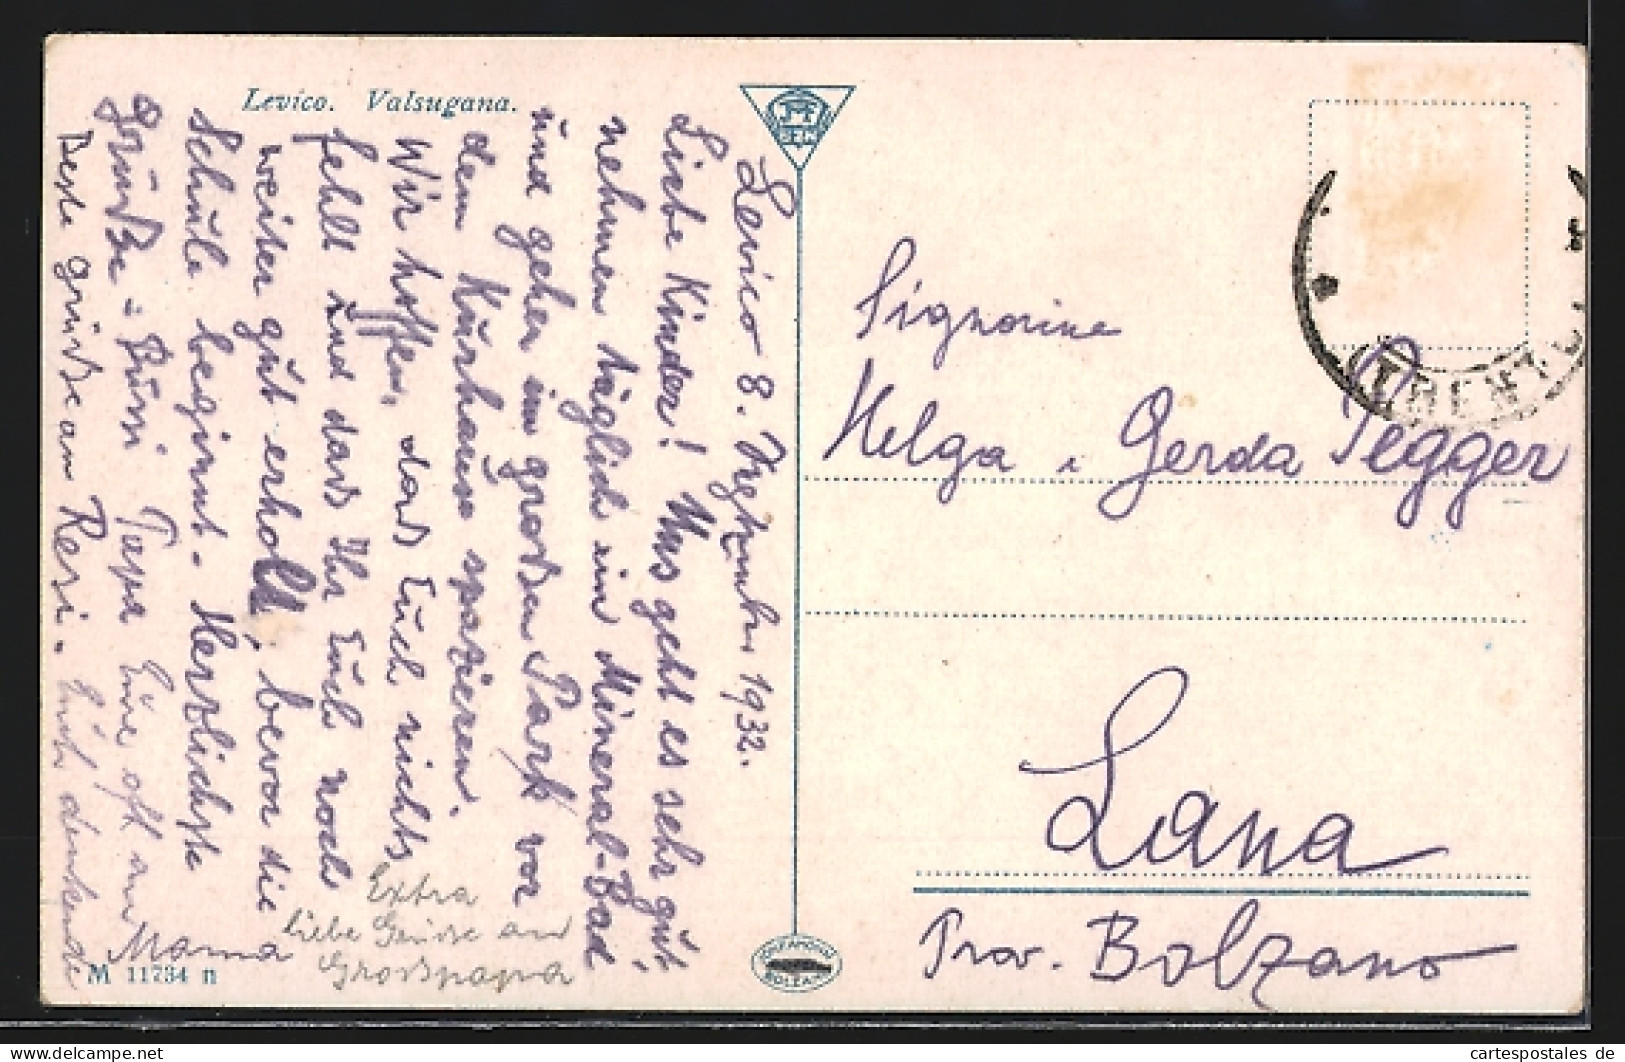 Levico. Valsugana.
Levico 8. September 1932.
Liebe Kinder! Uns geht es sehr gut
nehmen täglich ein Mineral-Bad
und gehen im großen Park vor
dem Kurhause spazieren.
Wir hoffen, dass Euch nichts
fehlt und dass Ihr Euch noch
weiter gut erholt, bevor die
Schule beginnt. Herzlichste
Grüße - Bussi Papa Eine oft an
Beste grüße an Resi. Euch denkende
Mama
Extra
liebe Grüsse an
Grosspapa
M 11734 n
Signorine
Helga i Gerda Pegger
Lana
Prov. Bolzano
TRENTO
BOLZANO
www.cartespostales.de